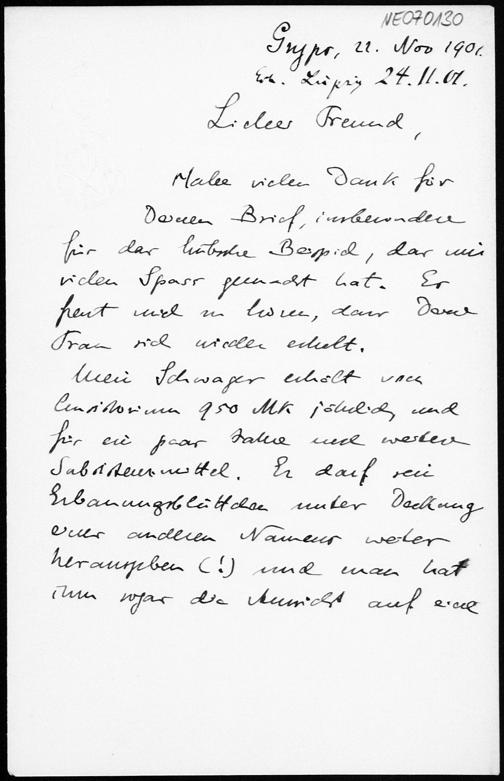 NE070130
Gryps, 22. Nov 1901.
Erh. Leipzig 24.11.01.
Lieber Freund,
Habe vielen Dank für
Deinen Brief, insbesondere
für das hübsche Beispiel, das mir
vielen Spass gemacht hat. Es
freut mich zu hören, dass Deine
Frau sich wieder erholt.
Mein Schwager erhält vom
Consistorium 950 Mk jährlich und
für ein paar Jahre und weitere
Subsistenzmittel. Er darf sein
Erbauungsblättchen unter Deckung
eines anderen Namens weiter
herausgeben (!) und man hat
ihm sogar die Aussicht auf eine